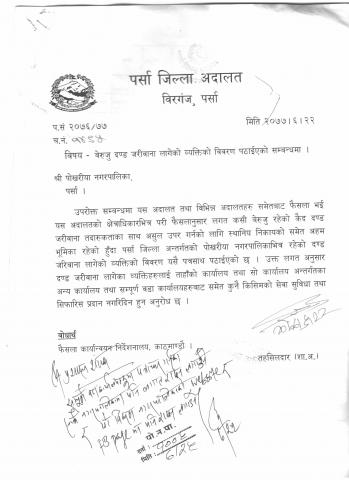 पर्सा जिल्ला अदालत
विरगंज, पर्सा
प.सं २०७६/७७
मिति :२०७७।६।२२
च.नं.
विषय - बेरुजु दण्ड जरीवाना लागेको व्यक्तिको विवरण पठाईएको सम्बन्धमा ।
श्री पोखरीया नगरपालिका,
पर्सा ।
उपरोक्त सम्बन्धमा यस अदालत तथा विभिन्न अदालतहरु समेतबाट फैसला भई
यस अदालतको क्षेत्राधिकारभित्र परी फैसलानुसार लगत कसी बेरुजु रहेको कैद दण्ड
जरीवाना तदारुकताका साथ असुल उपर गर्नको लागि स्थानिय निकायको समेत अहम
भूमिका रहेको हुँदा पर्सा जिल्ला अन्तर्गतको पोखरीया नगरपालिकाभित्र रहेको दण्ड
जरिवाना लागेको व्यक्तिको विवरण यसै पत्रसाथ पठाईएको छ । उक्त लगत अनुसार
दण्ड जरीवाना लागेका व्यक्तिहरुलाई ताहाँको कार्यालय तथा सो कार्यालय अन्तर्गतका
अन्य कार्यालय तथा सम्पूर्ण वडा कार्यालयहरुबाट समेत कुनै किसिमको सेवा सुविधा तथा
सिफारिस प्रदान नगरिदिन हुन अनुरोध छ ।
बोधार्थ
फैसला कार्यान्वयन निर्देशनालय, काठमाण्डौ ।
तहसिलदार (शा.अ.)